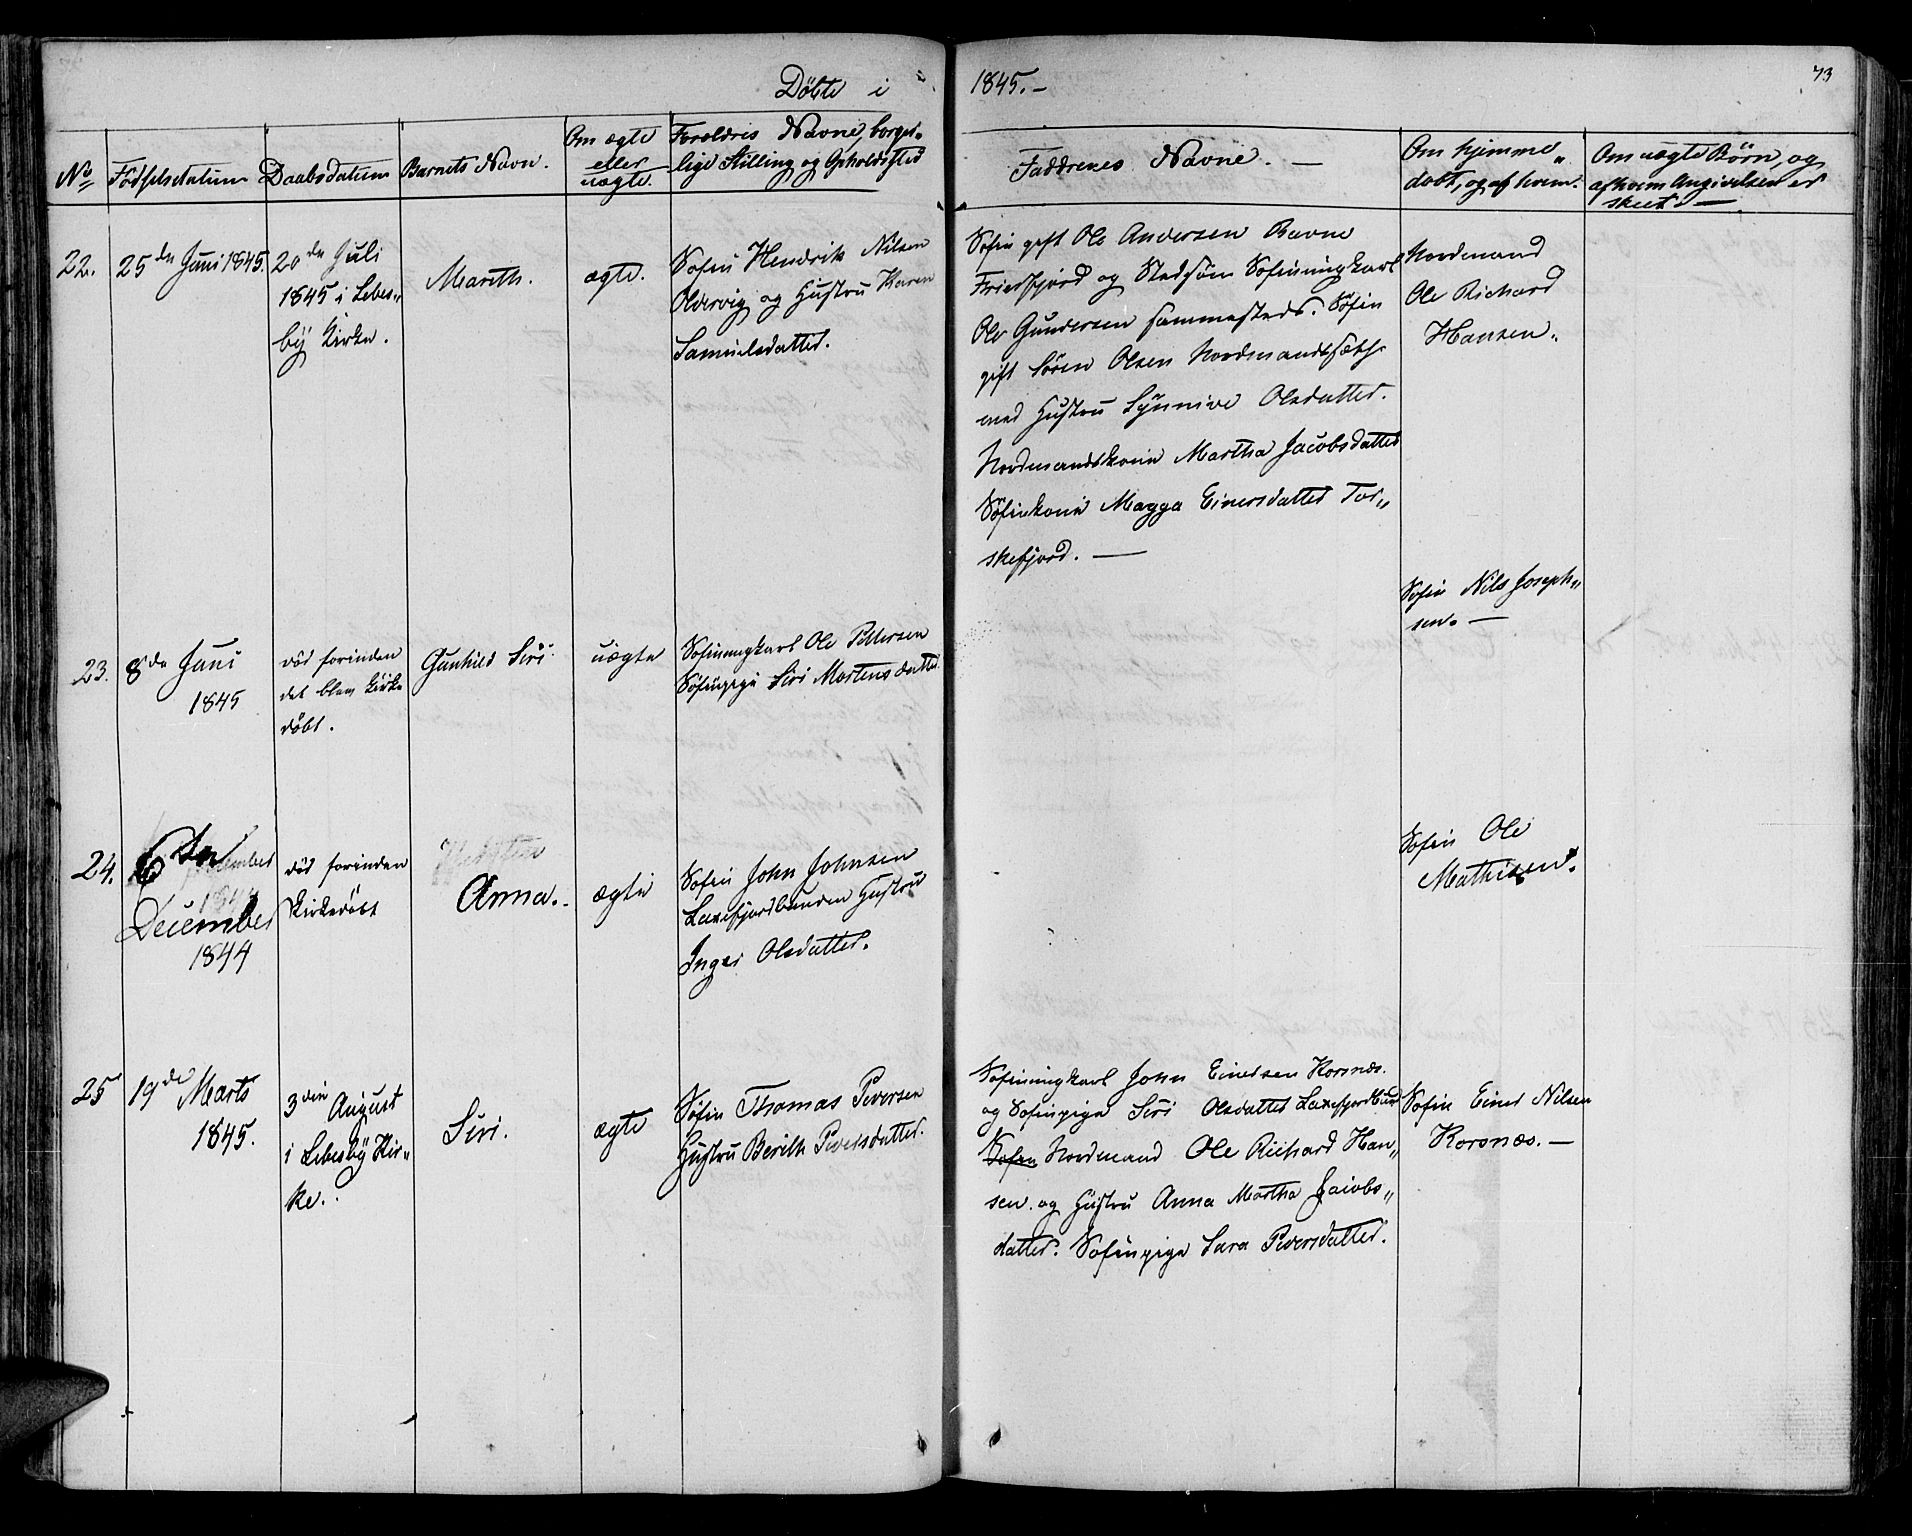 Döbte i 1845.-
73
No
Födselsdatum
Daabsdatum
Barnets Navn.
Om ægte
eller
uægte.
Forældres Navne, borger-
lige Stilling og Opholdssted
Faddrenes Navne. -
Om hjemme„
döbt, og af hvem.
Om uægte Börn, og
af hvem Angivelsen er
skeet. -
22.
25de Juni 1845.
20de Juli
1845 i Lebes„
by Kirke.
Mareth.
ægte.
Söfin Hendrik Nilsen
Oldervig og Hustru Karen
Samuelsdatter.
Söfin gift Ole Andersen Ravne
Friersfjord og Stedsön Sofinningkarl
Ole Gundersen sammesteds. Söfin
gift Sören Olsen Nordmandsæt
med Hustru Synnive Olsdatter.
Nordmandskone Martha Jacobsdatter
Söfinkone Magga Einersdatter Tor„
skefjord. -
Nordmand
Ole Richard
Hansen.
23.
8de Juni
1845
död forinden
det blev Kirke
döbt.
Gunhild Siri
uægte
Sofinningkarl Ole Pettersen
Söfinpige Siri Mortensdatter
Sofin Nils Joseph„
sen. -
24.
6te
December
1844
död forinden
Kirkedöbt
Anna.
ægte
Sofin John Johnsen
Laxefjordbunden Hustru
Inger Olsdatter.
Sofin Ole
Mathisen.
25
19de Marts
1845.
3die August
i Lebesby Kir„
ke.
Siri.
ægte
Söfin Thomas Peversen
Hustru Berith Peversdatter.
Sofinningkarl John Einersen Korsnæs.
og Sofinpige Siri Olsdatter Laxefjordbund
Sofin Nordmand Ole Richard Han„
sen. og Hustru Anna Martha Jacobs„
datter. Sofinpige Sara Peversdatter.
Sofin Einer Nilsen
Korsnæs. -